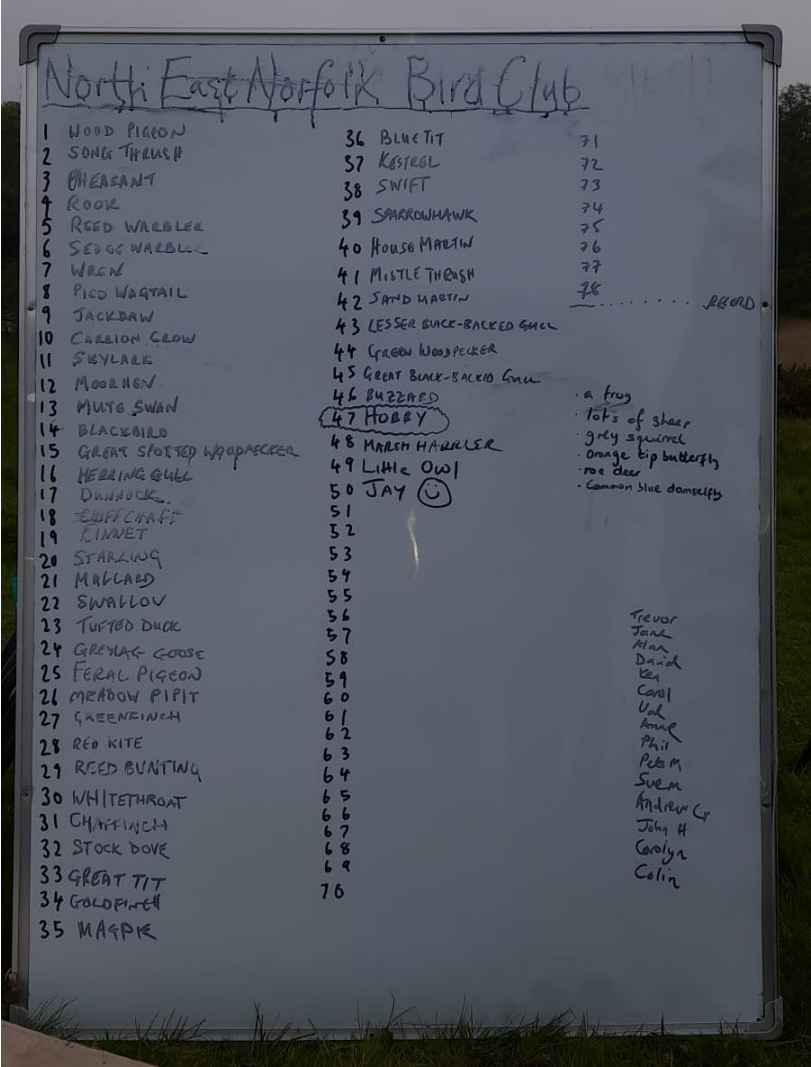 North East Norfolk Bird Club
1 WOOD PIGEON
2 SONG THRUSH
3 PHEASANT
4 ROOK
5 REED WARBLER
6 SEDGE WARBLER
7 WREN
8 PIED WAGTAIL
9 JACKDAW
10 CARRION CROW
11 SKYLARK
12 MOORHEN
13 MUTE SWAN
14 BLACKBIRD
15 GREAT SPOTTED WOODPECKER
16 HERRING GULL
17 DUNNOCK
18 CHIFFCHAFF
19 LINNET
20 STARLING
21 MALLARD
22 SWALLOW
23 TUFTED DUCK
24 GREYLAG GOOSE
25 FERAL PIGEON
26 MEADOW PIPIT
27 GREENFINCH
28 RED KITE
29 REED BUNTING
30 WHITETHROAT
31 CHAFFINCH
32 STOCK DOVE
33 GREAT TIT
34 GOLDFINCH
35 MAGPIE
36 BLUE TIT
37 KESTREL
38 SWIFT
39 SPARROWHAWK
40 HOUSE MARTIN
41 MISTLE THRUSH
42 SAND MARTIN
43 LESSER BLACK-BACKED GULL
44 GREEN WOODPECKER
45 GREAT BLACK-BACKED GULL
46 BUZZARD
47 HOBBY
48 MARSH HARRIER
49 Little Owl
50 JAY
51
52
53
54
55
56
57
58
59
60
61
62
63
64
65
66
67
68
69
70
71
72
73
74
75
76
77
78
........ RECORD
· a frog
· lots of sheep
· grey squirrel
· orange tip butterfly
· roe deer
· Common blue damselfly
Trevor
Jane
Alan
David
Ken
Carol
Val
Anne
Phil
Pete M
Sue M
Andrew G
John H
Carolyn
Colin